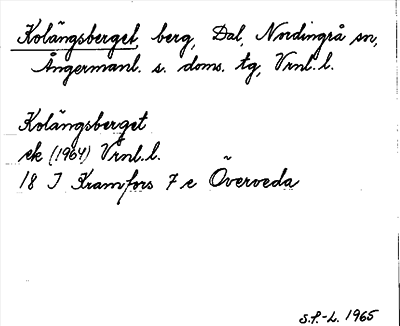 Kolängsberget, berg, Dal, Nordingrå sn,
Ångermanl. s. doms. tg, Vrnl. l.
Kolängsberget
ek (1964) Vrnl. l.
18 J Kramfors 7 e Överveda
S.P.-L. 1965